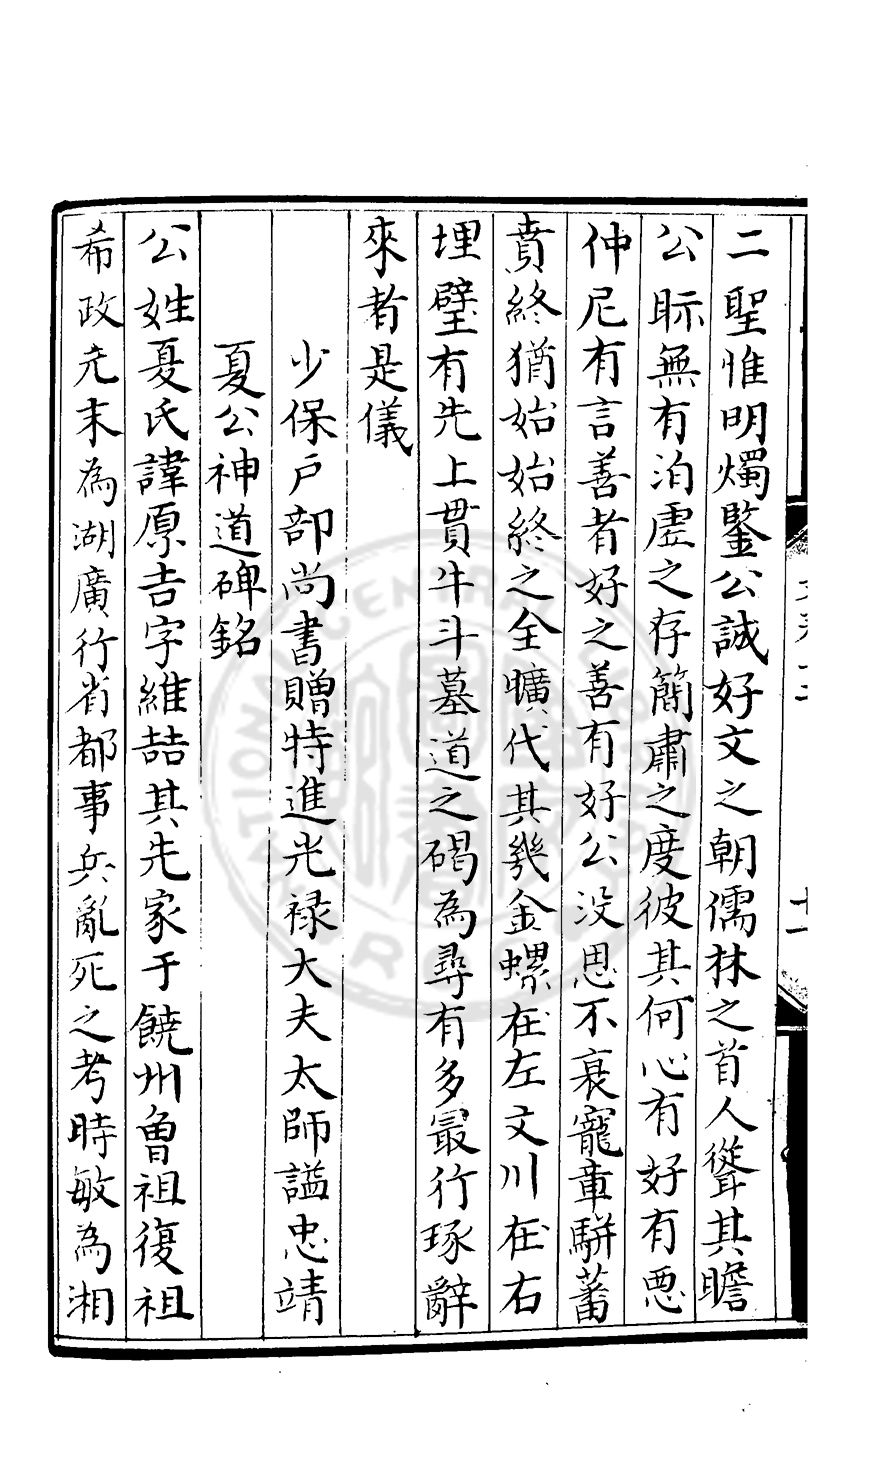 二聖惟明燭鑒公誠好文之朝儒林之首人聳其瞻
公眎無有泊虛之存簡肅之度彼其何心有好有惡
仲尼有言善者好之善有好公没思不衰寵章駢蕃
賁終猶始始終之全曠代其幾金螺在左文川在右
埋璧有先上貫牛斗墓道之碣為尋有多最行琢辭
來者是儀
少保戶部尚書贈特進光祿大夫太師謚忠靖
夏公神道碑銘
公姓夏氏諱原吉字維喆其先家于饒州魯祖復祖
希政元末為湖廣行省都事兵亂死之考時敏為湘